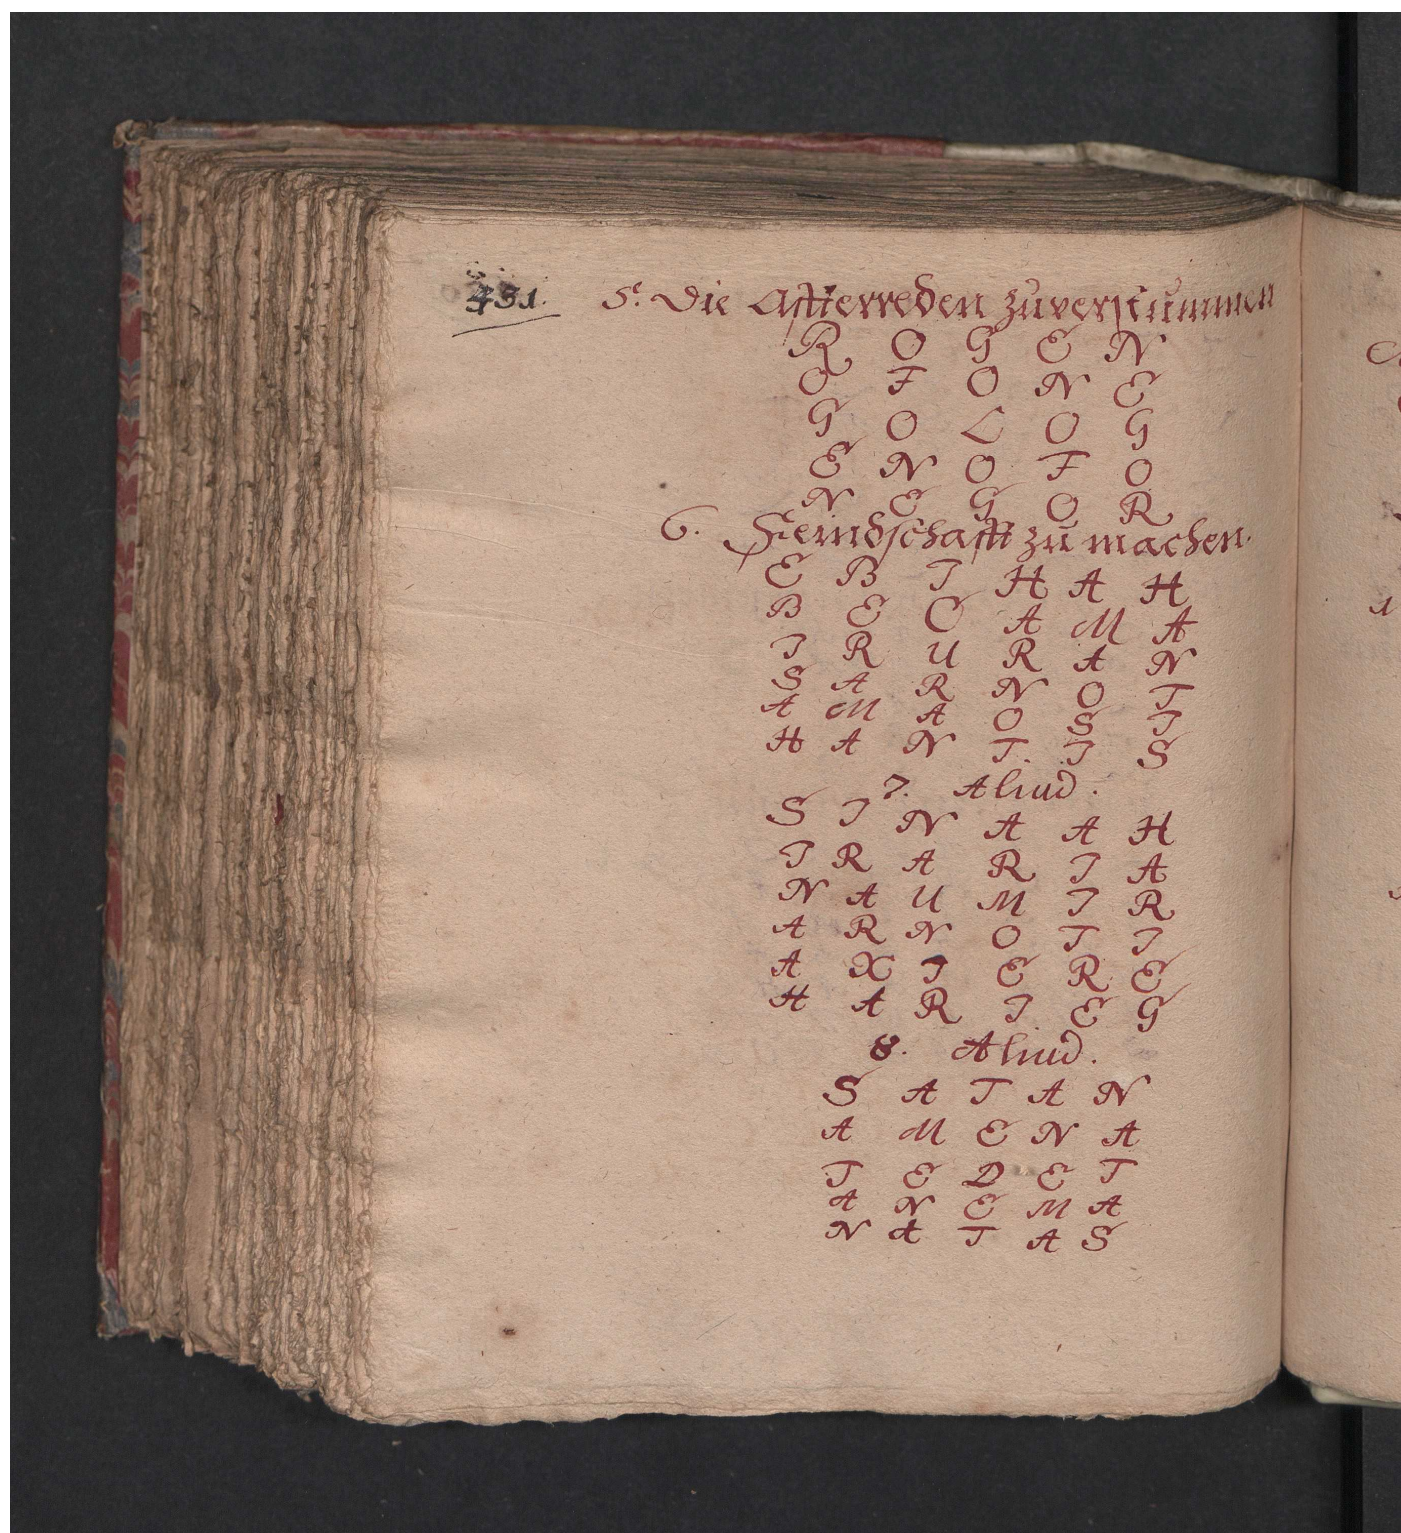 431. 5. Die Affterreden zuverstummen
R O G E N
O F O N E
G O L O G
E N O F O
N E G O R
6. Feindschafft zu machen.
E B I H A H
B E O A M A
I R U R A N
S A R N O T
A M A O S I
H A N T I S
7. Aliud.
S I N A A H
I R A R I A
N A U M I R
A R N O T I
A X I E R E
H A R I E G
8. Aliud.
S A T A N
A M E N A
T E D E T
A N E M A
N A T A S